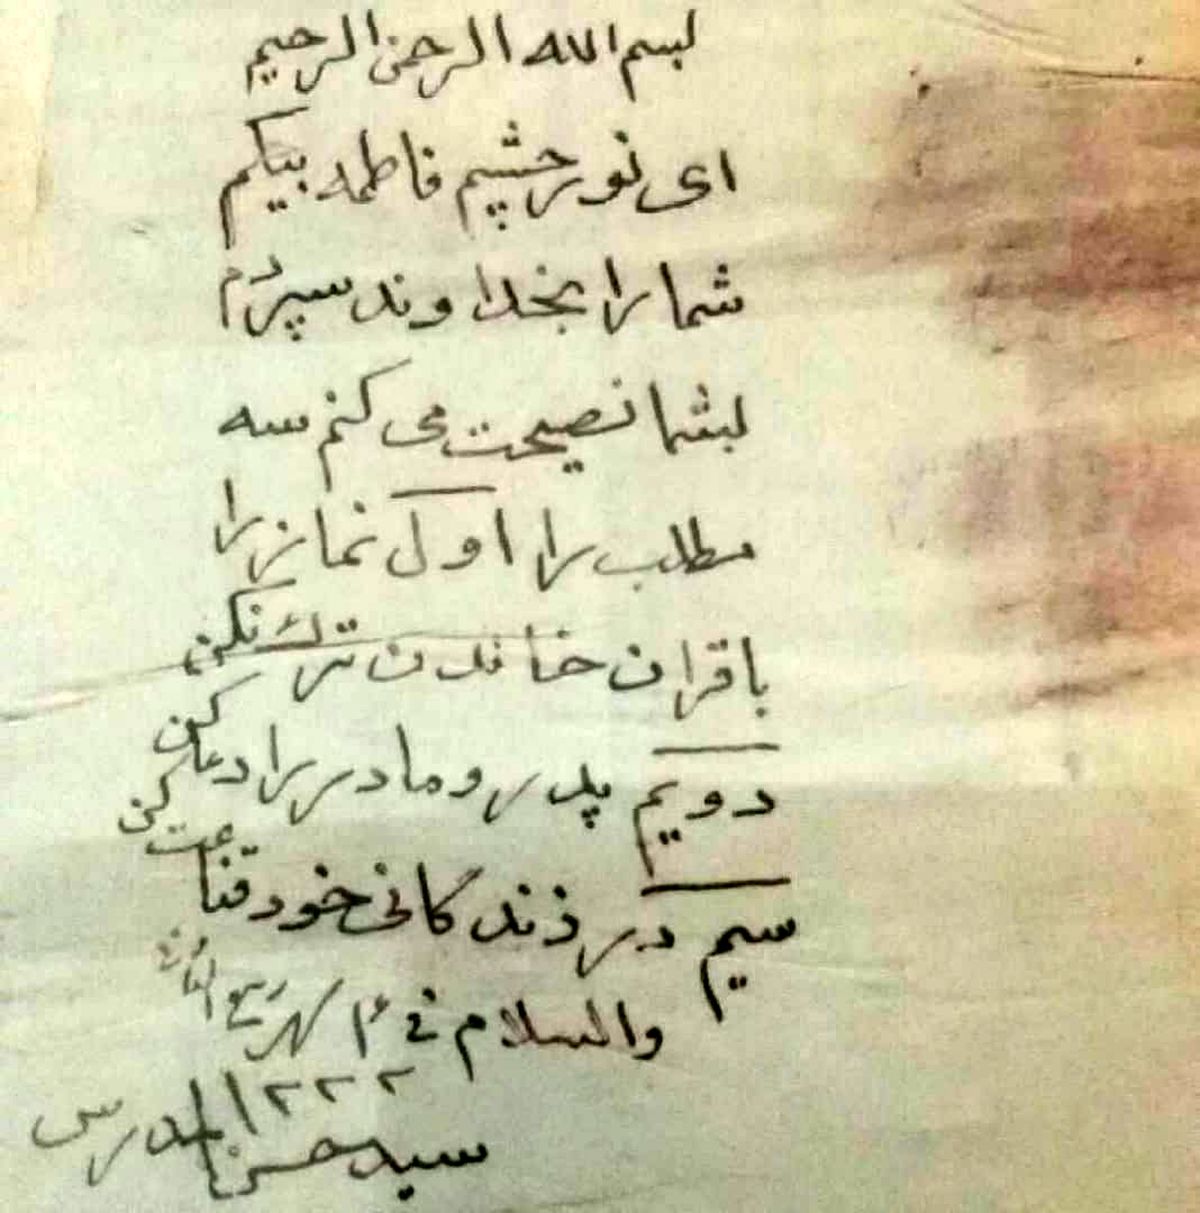 بسم الله الرحمن الرحیم
ای نور چشم فاطمه بیگم
شما را بخداوند سپردم
بشما نصیحت می کنم سه
مطلب را اول نماز را
با قران خاندن ترک نکن
دویم پدر و مادر را دعا کن
سیم در ذندگانی خود قناعت کن
والسلام فی شهر ربیع الثانی
۱۳۲۲
سید حسن المدرس